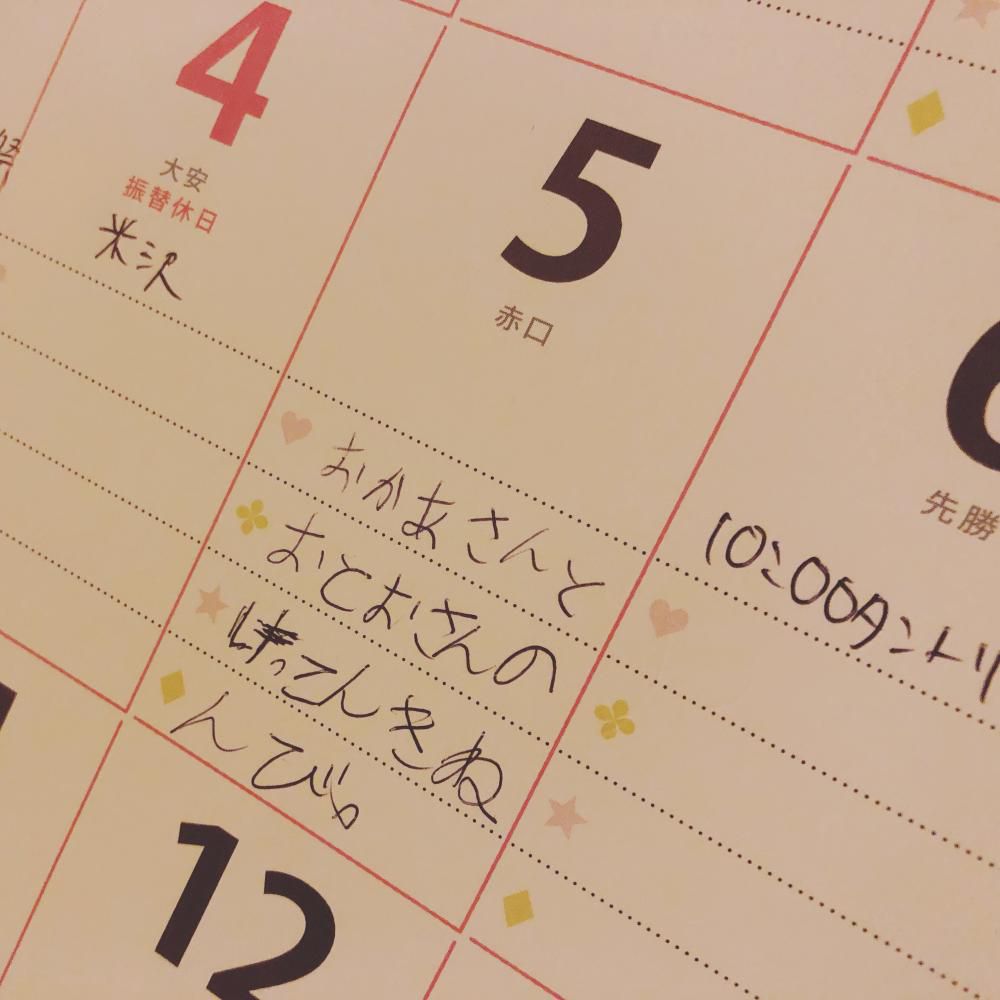 4
大安
振替休日
米沢
5
赤口
おかあさんと
おとおさんの
けってんきね
んび。
6
先勝
10:00タントリ
12